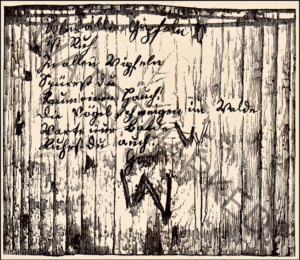 Über allen Gipfeln
ist Ruh
In allen Wipfeln
Spürest du
Kaum einen Hauch!
Die Vögel schweigen im Walde
Warte nur Balde
Ruhest du auch.
W
W